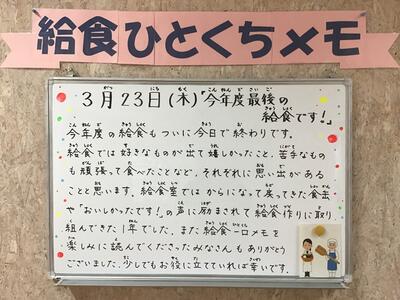 給食ひとくちメモ
3月23日(木)「今年度最後の
給食です!」
今年度の給食もついに今日で終わりです。
給食では好きなものが出て嬉しかったこと、苦手なもの
も頑張って食べたことなど、それぞれに思い出がある
ことと思います。給食室ではからになって戻ってきた食缶
や「おいしかったです!」の声に励まされて給食作りに取り
組んできた1年でした。また給食一口メモを
楽しみに読んでくださったみなさんもありがとう
ございました。少しでもお役に立てていれば幸いです。